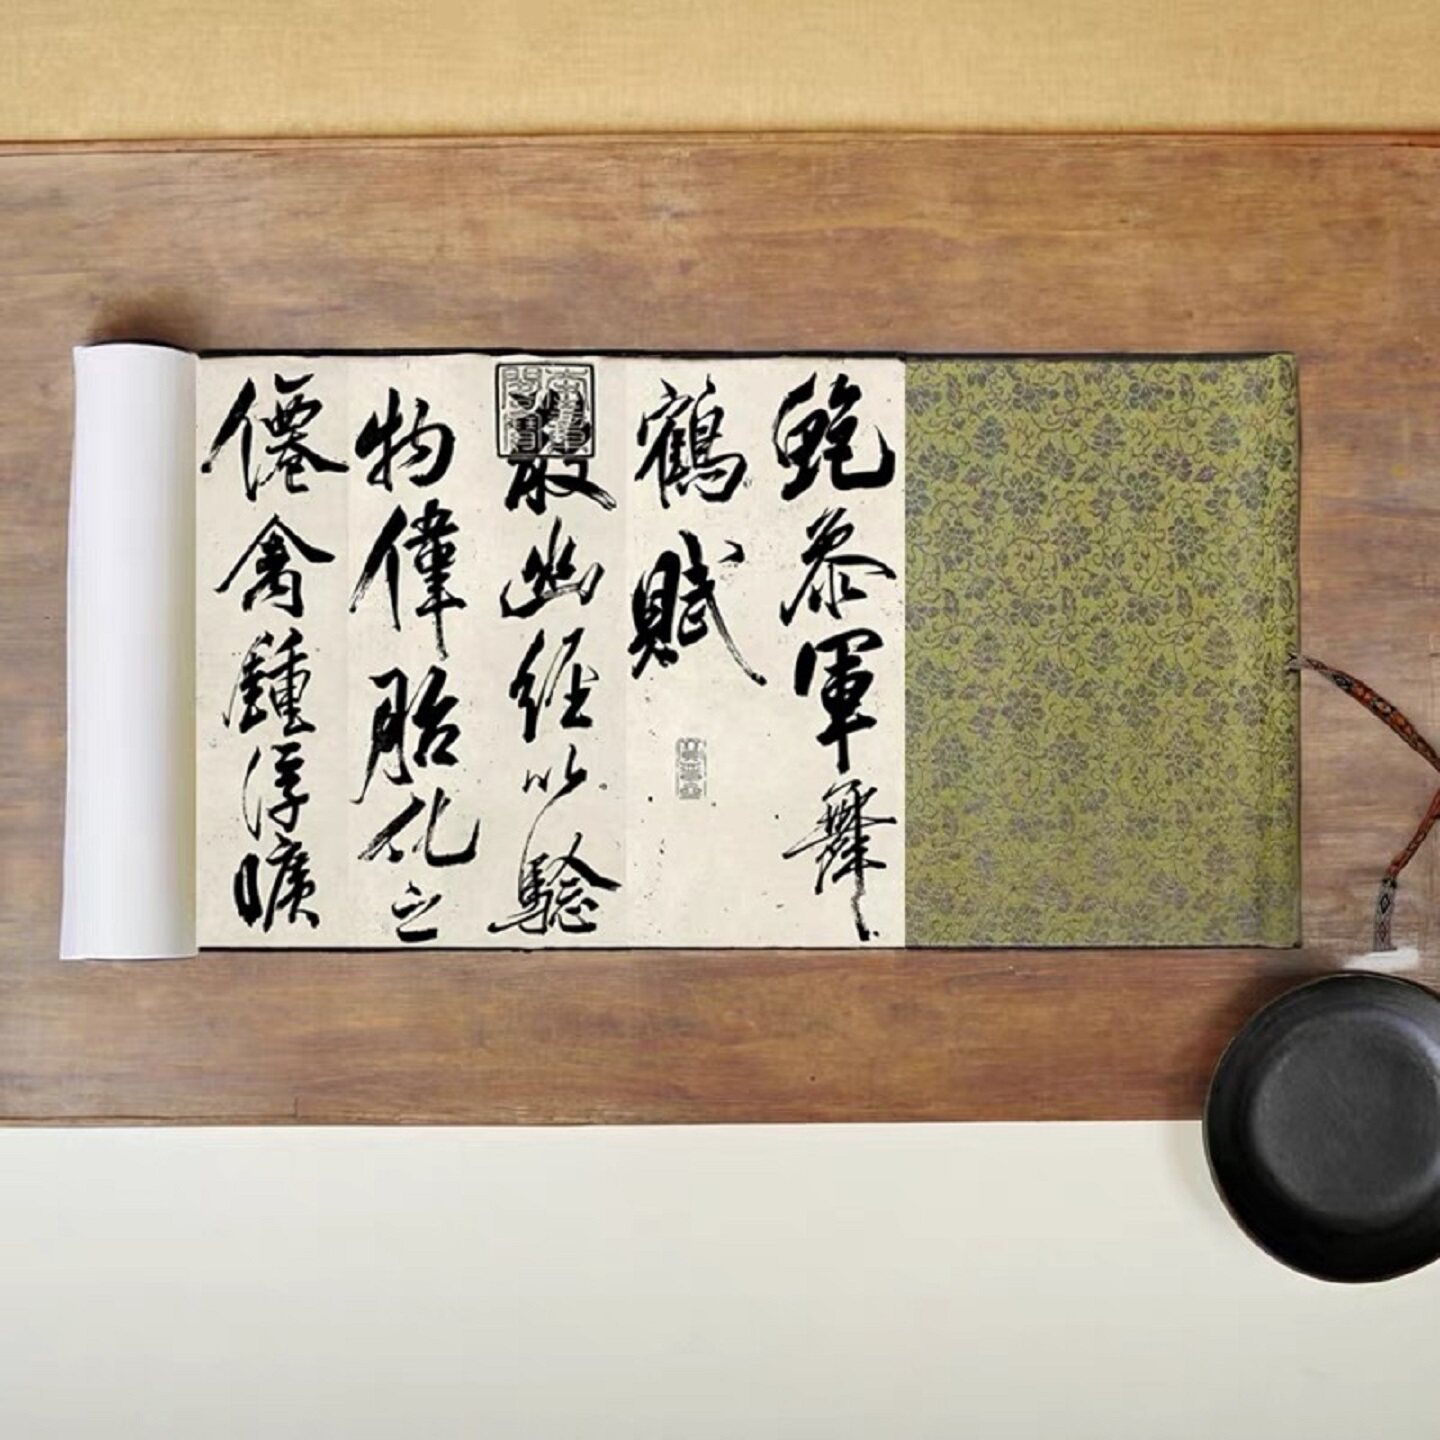 鮑叅軍舞
鶴賦
散幽經以驗
物偉胎化之
僊禽鍾浮曠